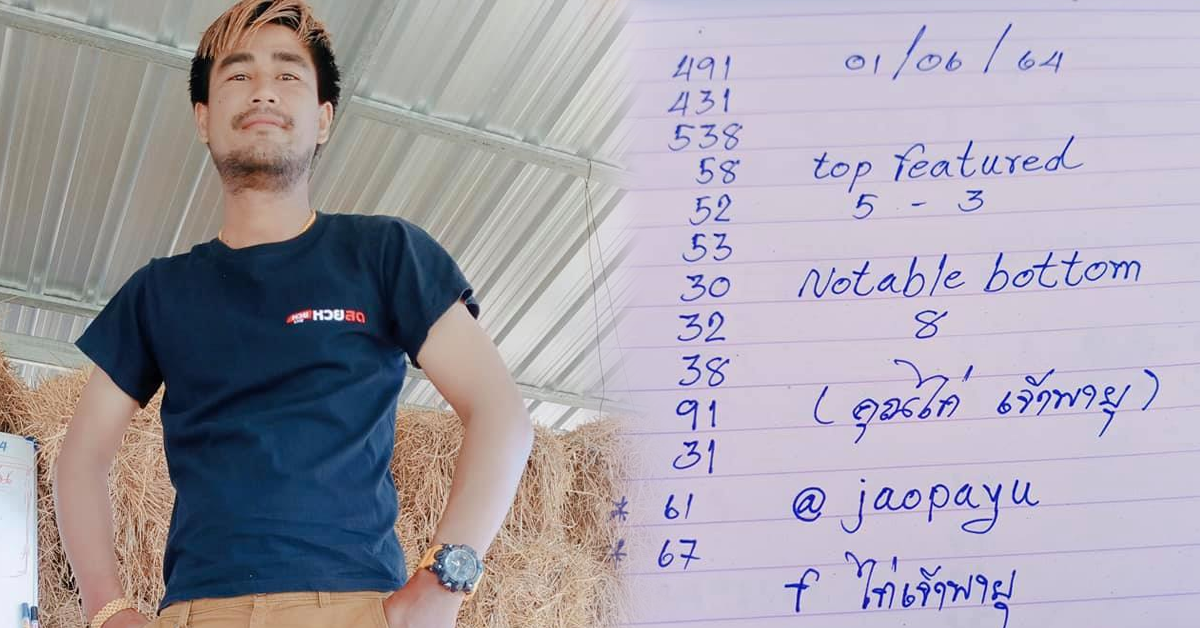 หวยสด
491
431
538
58
52
53
30
32
38
91
31
* 61
* 67
01/06/64
top featured
5 - 3
Notable bottom
8
(คุณไก่ เจ้าพายุ)
@ jaopayu
f ไก่เจ้าพายุ